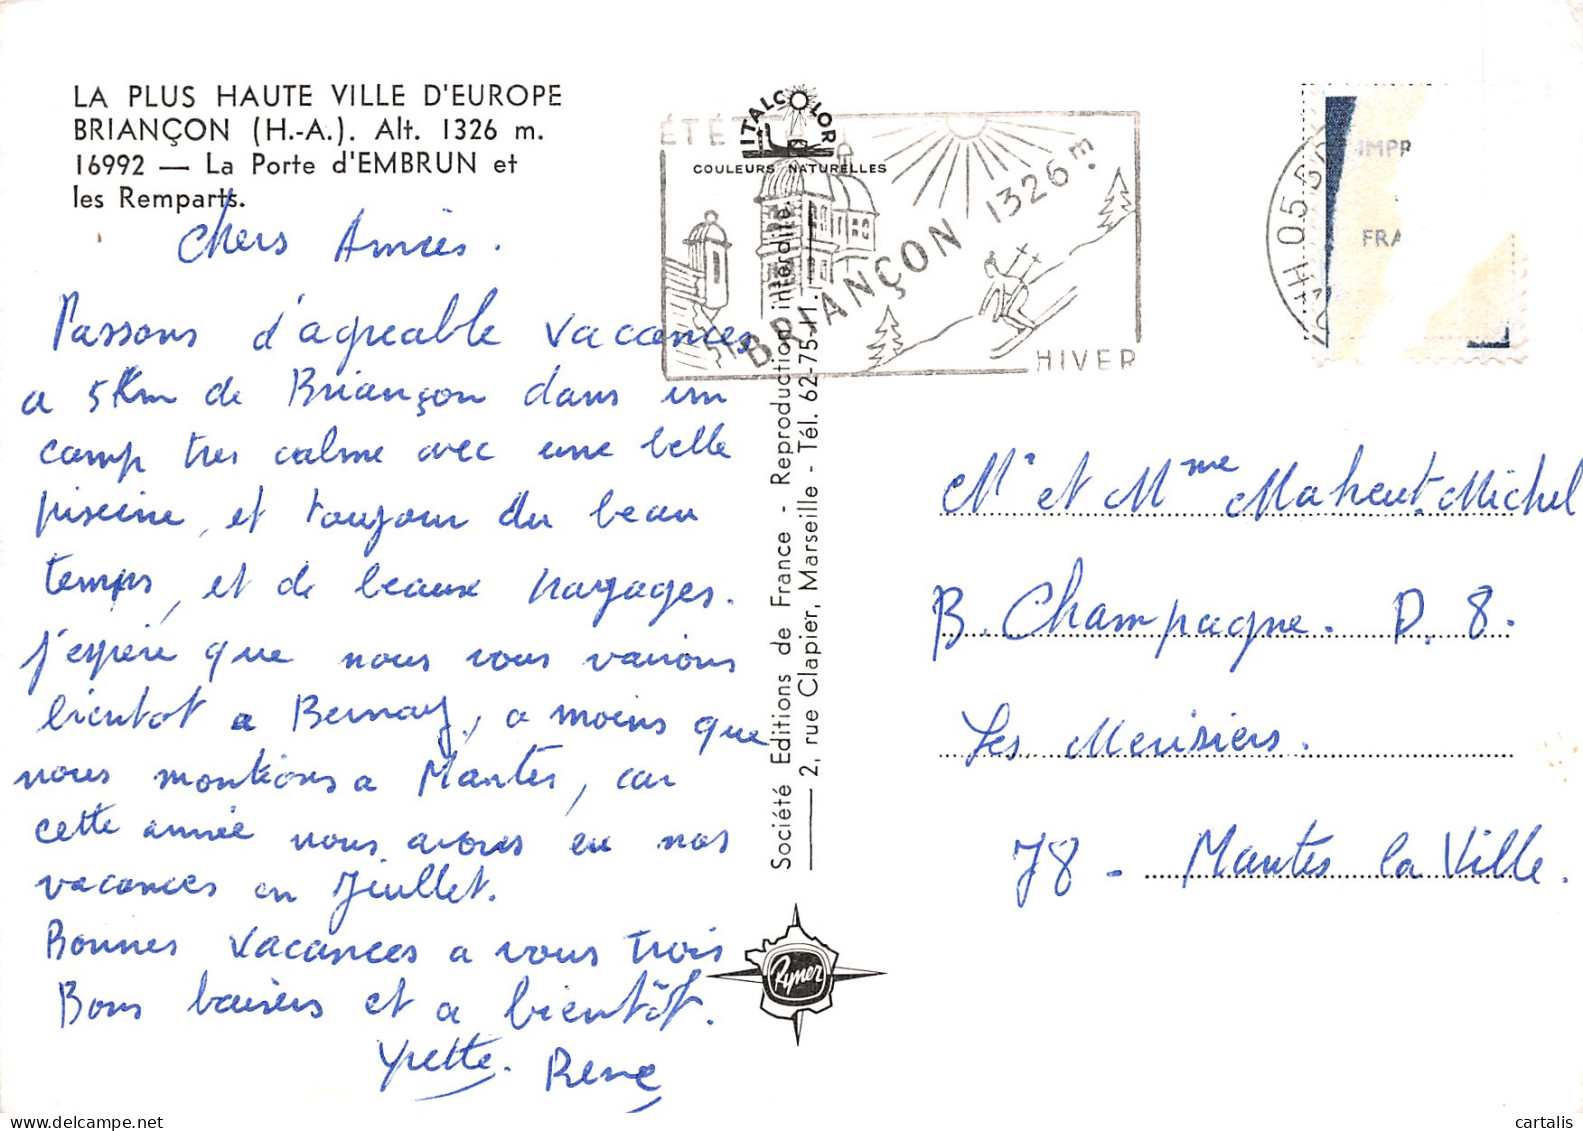 LA PLUS HAUTE VILLE D'EUROPE
BRIANÇON (H.-A.). Alt. 1326 m.
16992 — La Porte d'EMBRUN et
les Remparts.
Chers Amies.
Passons d'agreable vacances
a 5Km de Briançon dans un
camp tres calme avec une belle
piscine, et toujour du beau
temps, et de beaux payages.
j'espère que nous vous varions
bientot a Bernay, a moins que
nous montions a Mantes, car
cette année nous avons eu nos
vacances en Juillet.
Bonnes vacances a vous trois
Bons baisers et a bientôt.
Yvette. Rene
ITALCOLOR
COULEURS NATURELLES
ÉTÉ
BRIANÇON 1326m.
HIVER
Société Editions de France - Reproduction interdite.
2, rue Clapier, Marseille - Tél. 62-75-11.
Rymer
H. 05
IMPR
FRA
Mr et Mme Maheut Michel
B. Champagne. D. 8.
Les Meusiers.
78 - Mantes la Ville.
cartalis